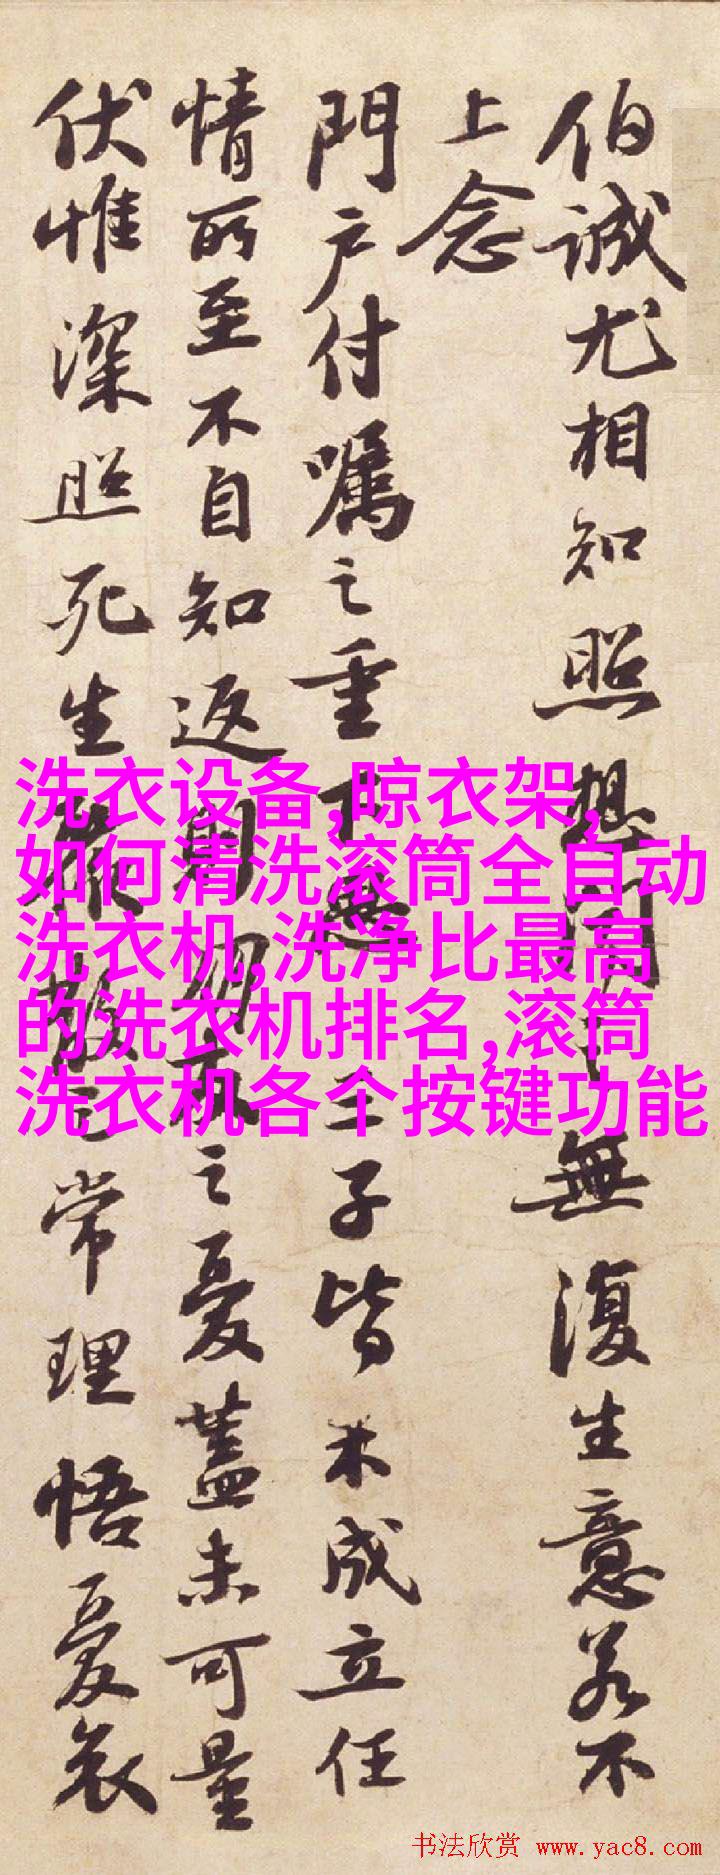 伯誠尤相知照想聞之無復生意若不
上念
門户付囑之重下思三子皆未成立任
情所至不自知返則朝夕之憂蓋未可量
伏惟深照死生聚散之常理悟憂哀
洗衣设备,晾衣架,
如何清洗滚筒全自动
洗衣机,洗净比最高
的洗衣机排名,滚筒
洗衣机各个按键功能
书法欣赏 www.yac8.com